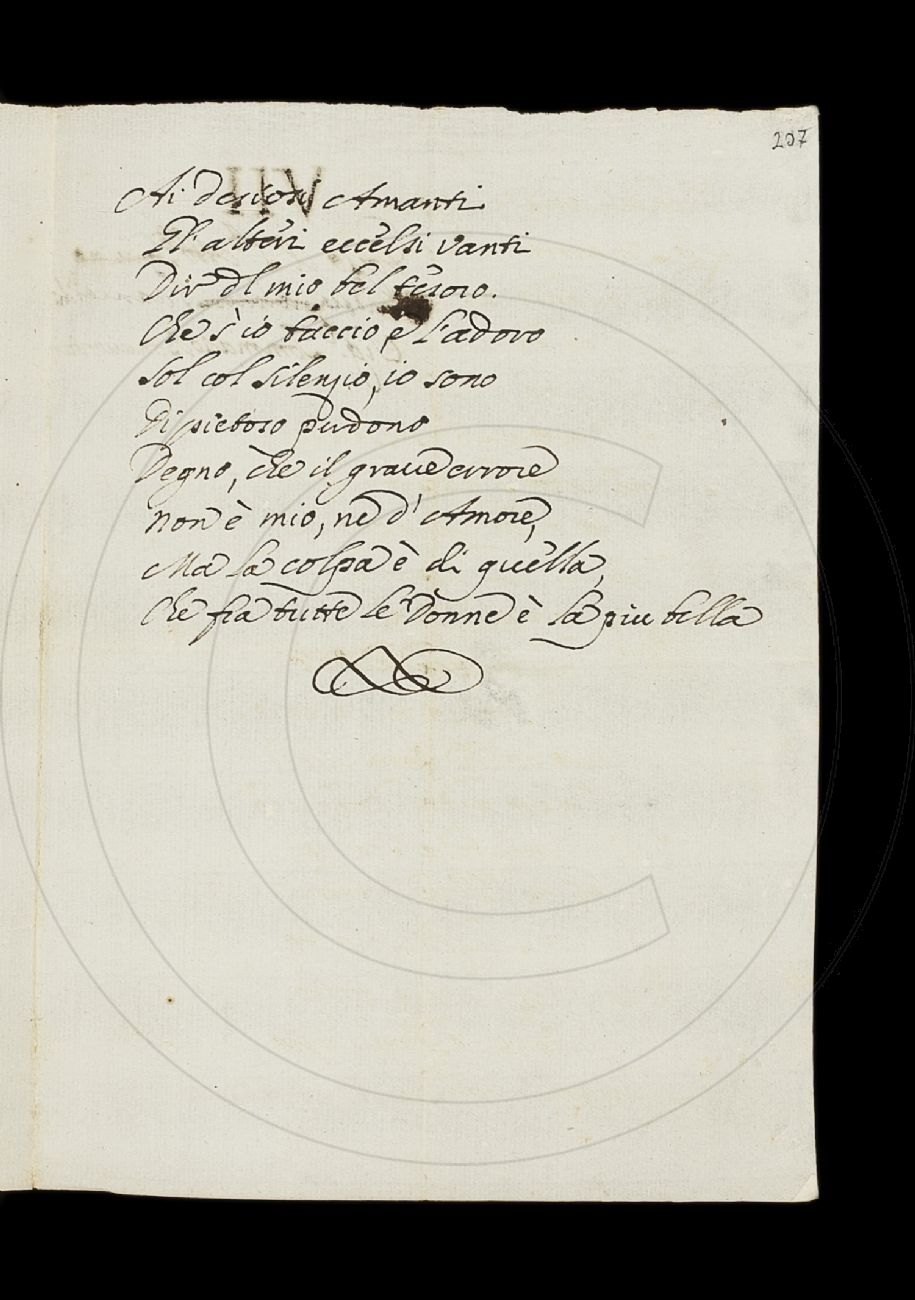 207
Ai desiosi Amanti
Gl'alteri eccelsi vanti
Dir del mio bel tesoro.
Che s'io taccio, e l'adoro
Sol col silenzio, io sono
Di pietoso perdono
Degno, che il graue errore
non è mio, ne d'Amore,
Ma la colpa è di quella,
Che fra tutte le Donne è la piu bella